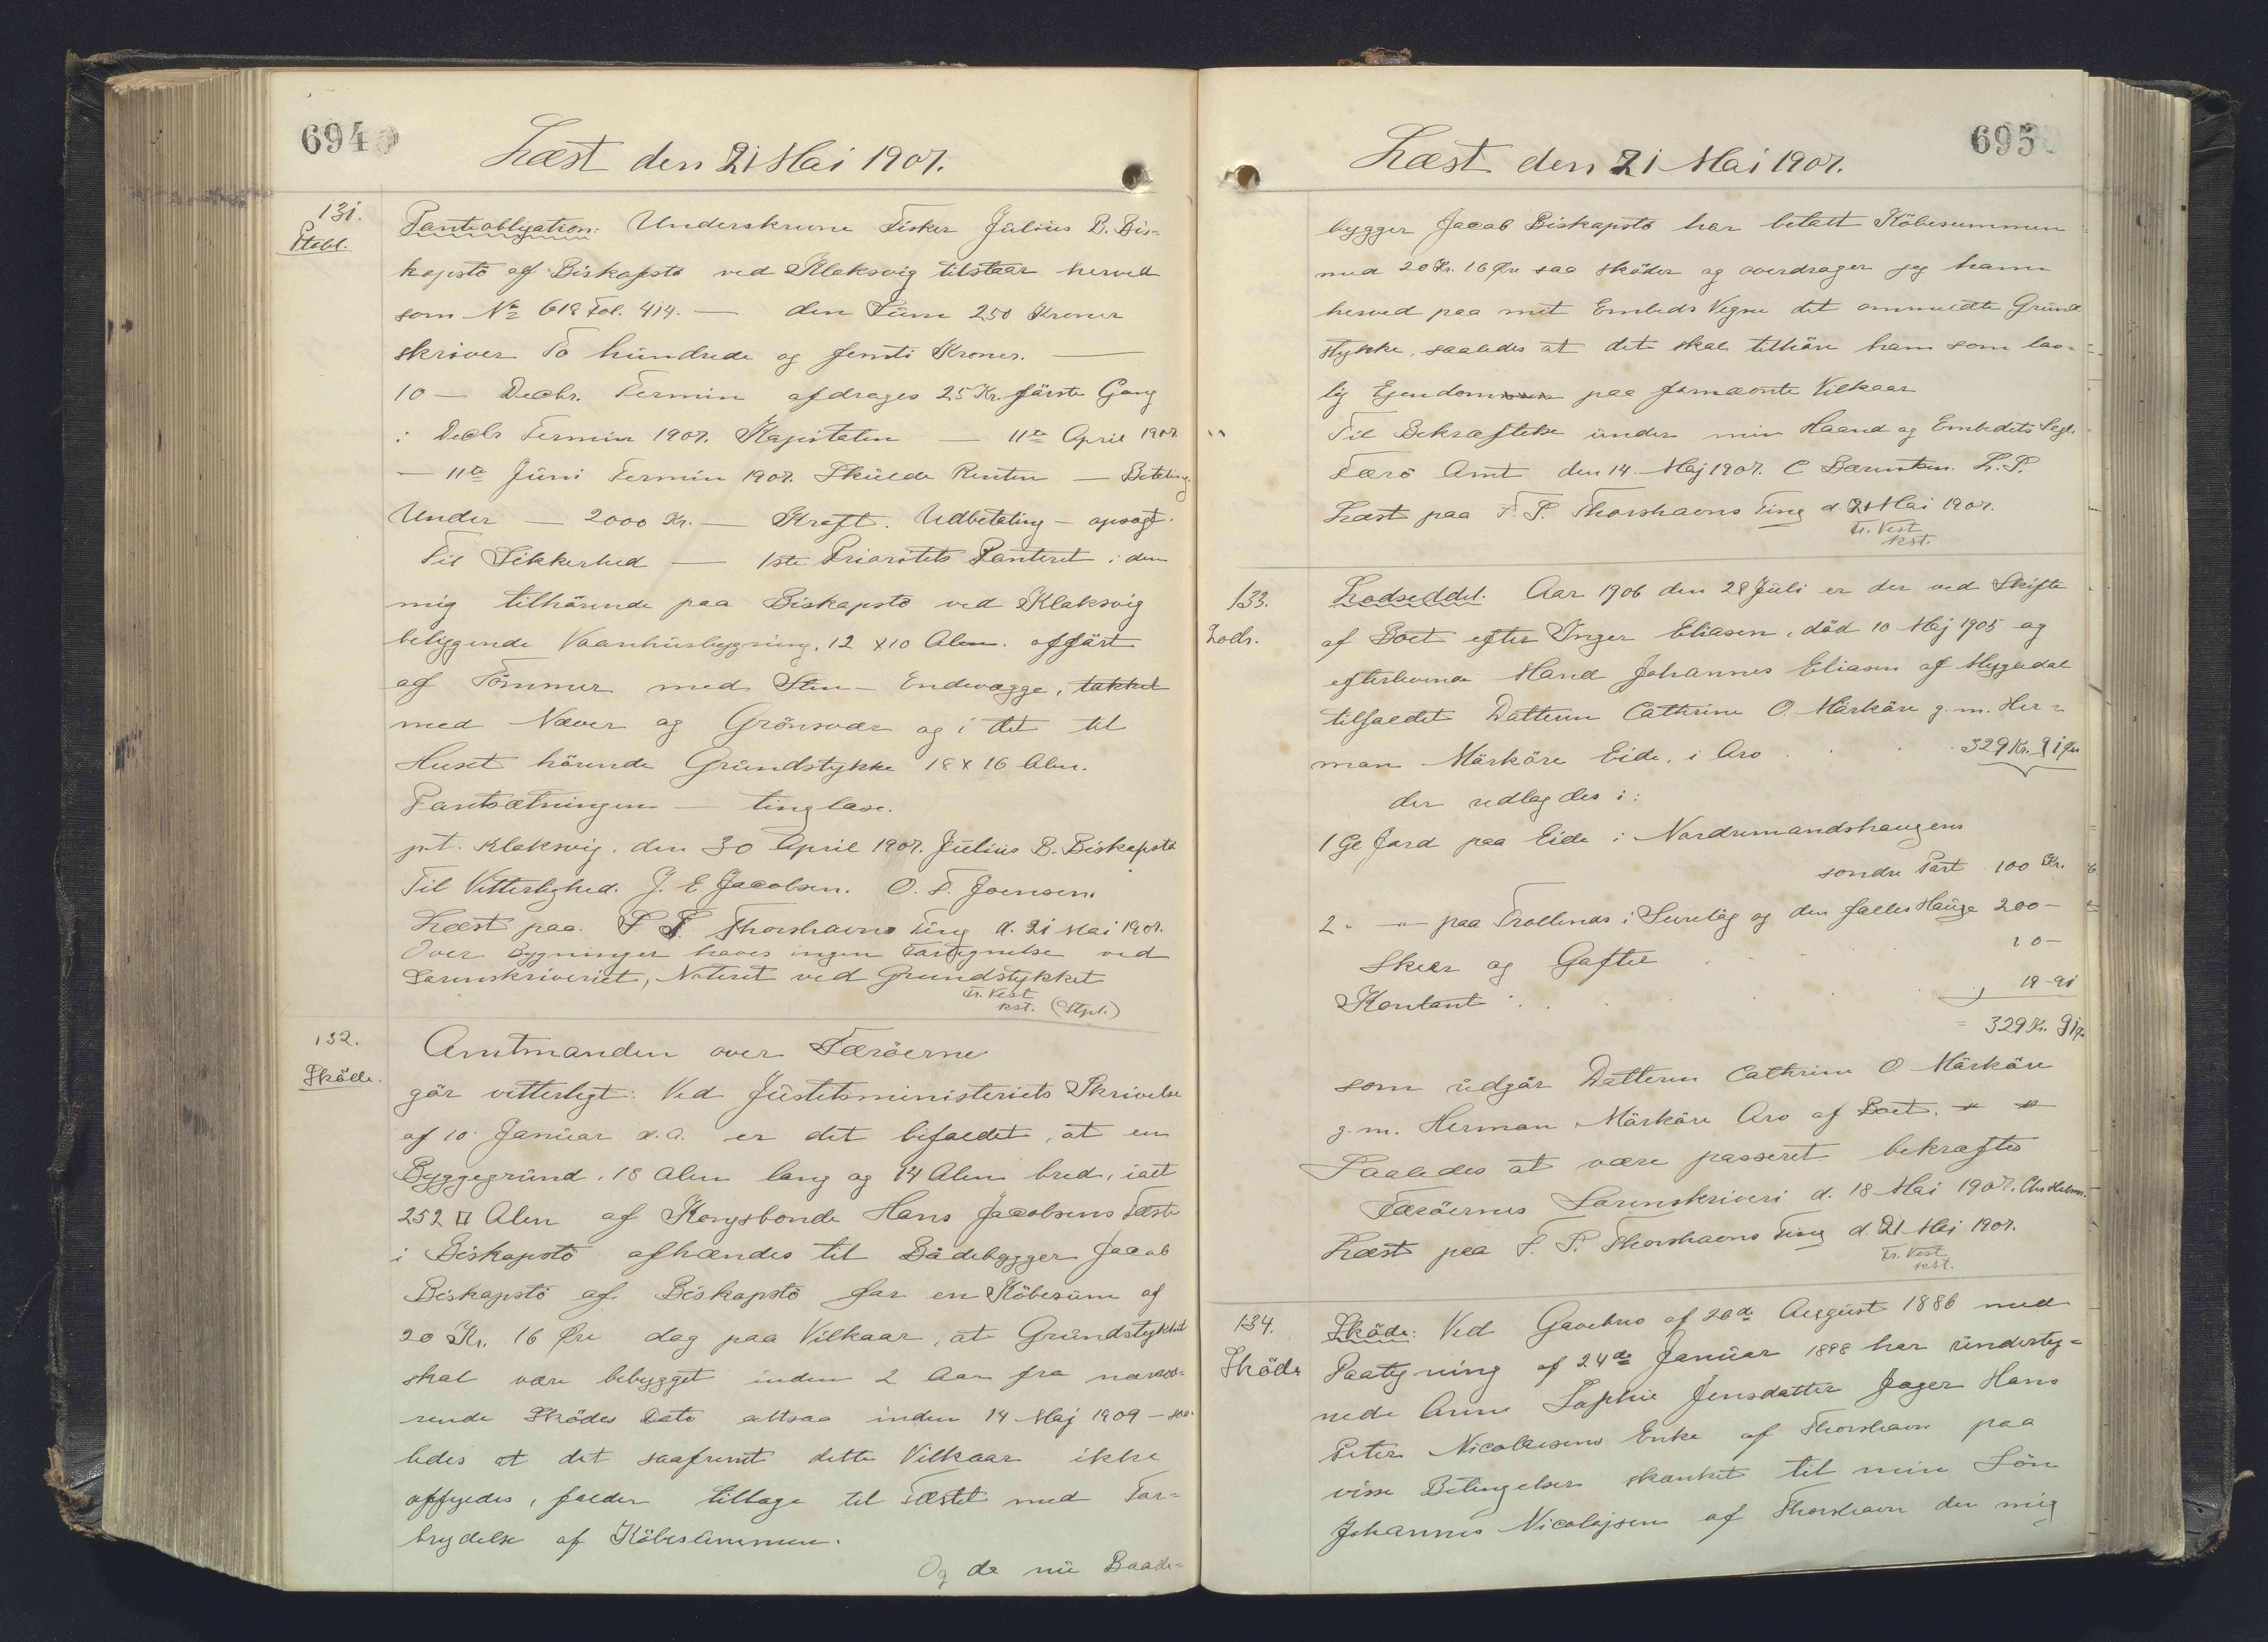 694
Læst den 21 Mai 1907.
131.
Ptobl.
Panteobligation: Underskrevne Fisker Julius B. Bis-
kopstö af Biskopstö ved Klaksvig tilstaar herved
som No 618 Fol. 414. — den Sum 250 Kroner
skriver To hundrede og femti Kroner. —
10 — Decbr. Termin afdrages 25 Kr. första Gang
i Decbr Termin 1907. Kapitalen — 11te April 1907
— 11te Juni Termin 1907. Skulde Renten — Betaling
Under — 2000 Kr. — Kraft. Udbetaling — opsagt.
Til Sikkerhed — 1ste Prioritets Panteret i den
mig tilhörende paa Biskopstö ved Klaksvig
beliggende Vaanhusbygning, 12 x 10 Alen. opfört
af Tömmer med Sten- Endevægge, takket
med Næver og Grönsvær og i det til
Huset hörende Grundstykke 18 x 16 Alen.
Pantsætningen — tinglæse.
pt. Klaksvig, den 30 April 1907. Julius B. Biskopstö
Til Vitterlighed. J. E. Jacobsen. O. F. Joensen.
Læst paa S. S. Thorshavns Ting d. 21 Mai 1907.
Over Bygninger haves ingen Fortegnelse ved
Sorenskriveriet, Noteret ved Grundstykket
Tr. Vest
kst. (Stpl.)
132.
Sköde.
Amtmanden over Færöerne
gör vitterligt: Ved Justitsministeriets Skrivelse
af 10 Januar d.A. er det bifaldet, at en
Byggegrund, 18 Alen lang og 14 Alen bred, ialt
252 □ Alen af Kongsbonde Hans Jacobsens Fæste
i Biskopstö afhændes til Bådebygger Jacob
Biskopstö af Biskopstö for en Köbesum af
20 Kr. 16 Øre dog paa Vilkaar, at Grundstykket
skal være bebygget inden 2 Aar fra nærvæ-
rende Sködes Dato altsaa inden 14 Maj 1909 – saa-
ledes at det saafremt dette Vilkaar ikke
opfyldes, falder tilbage til Fæstet med For-
brydelse af Köbesummen.
Og da nu Baade-
695
Læst den 21 Mai 1907.
bygger Jacob Biskopstö har betalt Köbesummen
med 20 Kr. 16 Øre saa sköder og overdrager jeg ham
herved paa mit Embeds Vegne det ommeldte Grund
stykke, saaledes at det skal tilhöre ham som lov-
lig Ejendom paa fornævnte Vilkaar
Til Bekræftelse under min Haand og Embedets Segl.
Færö Amt den 14. Maj 1907. C Bærentsen. L. S.
Læst paa F. S. Thorshavns Ting d. 21 Mai 1907.
Tr. Vest
kst.
133.
Lods.
Lodseddel. Aar 1906 den 28 Juli er der ved Skifte
af Boet efter Inger Eliasen, död 10 Maj 1905 og
efterlevende Mand Johannes Eliasen af Mygledal
tilfaldet Datteren Cathrine O. Mörköre g. m. Her-
man Mörköre Eide, i Arv . . . 329 Kr. 91 Øre
der udlagdes i:
1 Gl Jord paa Eide i Nordremandshaugens
sondre Part 100 Kr.
2 - " - paa Trollenæs i Surelåg og den fælles Hauge 200 —
Skeer og Gafler . . 10 —
Kontant . . . . 19 - 91
= 329 Kr. 91 Ø.
som udgör Datteren Cathrine O Mörköre
g. m. Herman Mörköre Arv af Boet.
Saaledes at være passeret bekræftes
Færöernes Sorenskriveri d. 18 Mai 1907. Chr Holm.
Læst paa F. S. Thorshavns Ting d. 21 Maj 1907.
Tr. Vest
kst.
134.
Sköde
Sköde: Ved Gavebrev af 26de August 1886 med
Paategning af 24de Januar 1898 har underteg-
nede Anne Sophie Jensdatter Jager Hans
Peter Nicolaisens Enke af Thorshavn paa
visse Betingelser skænket til min Sön
Johannes Nicolajsen af Thorshavn den mig